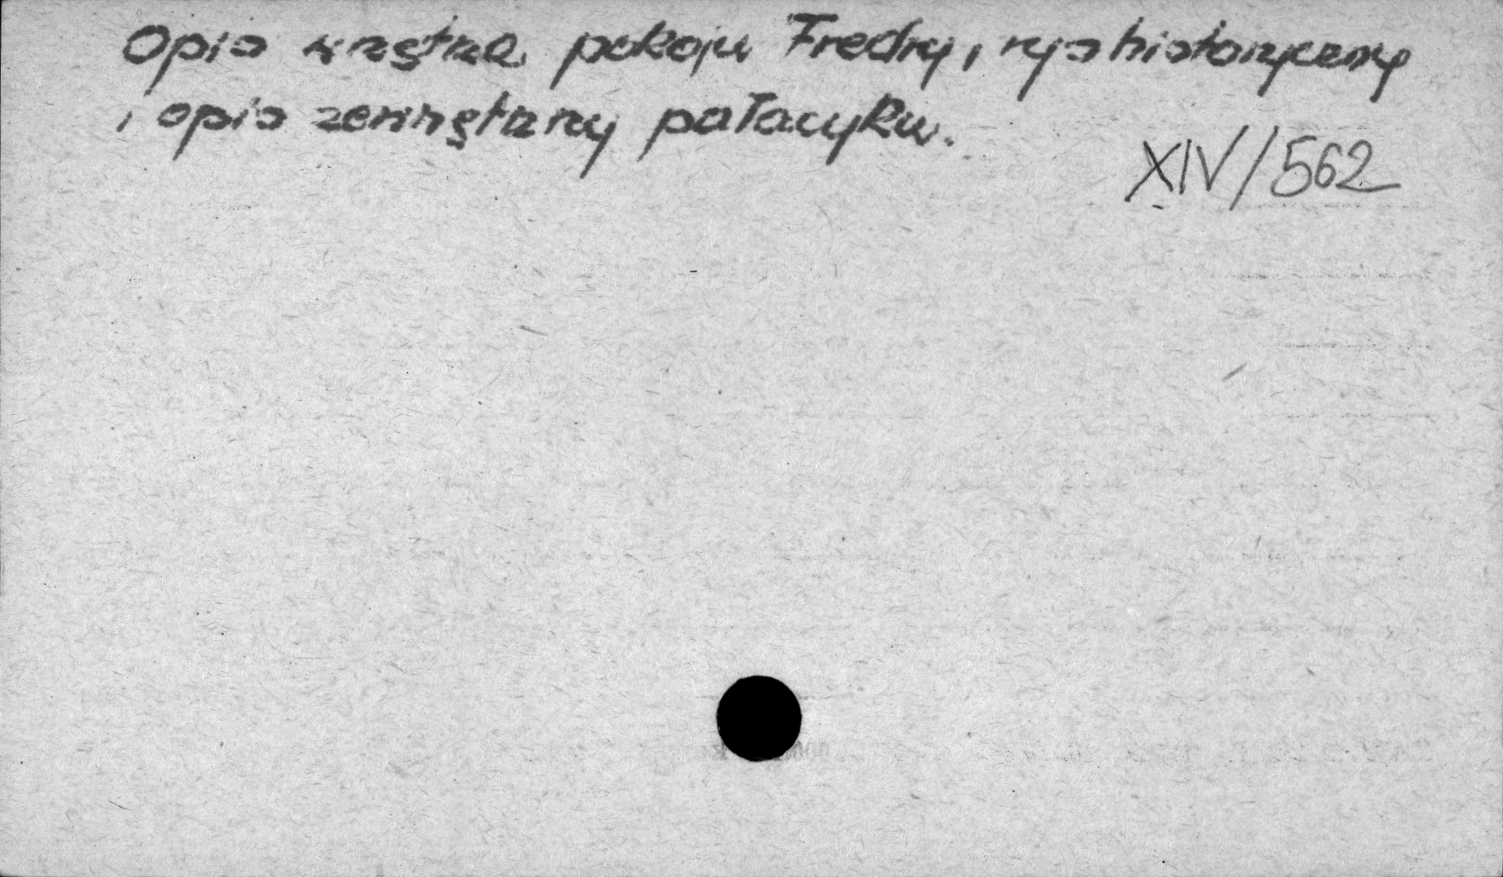 Opis wnętrza pokoju Fredry, rys historyczny
i opis zewnętrzny pałacyku.
XIV/562